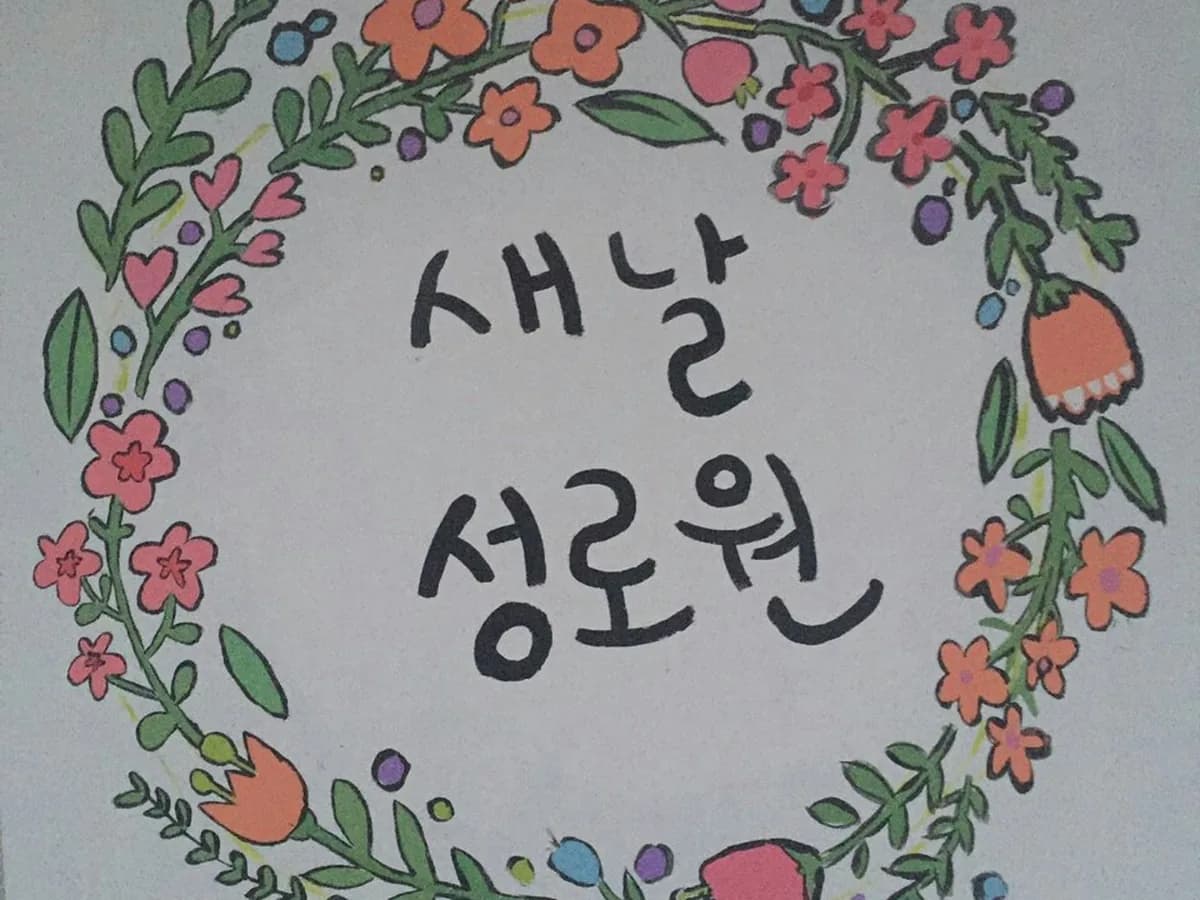 새날
성로원